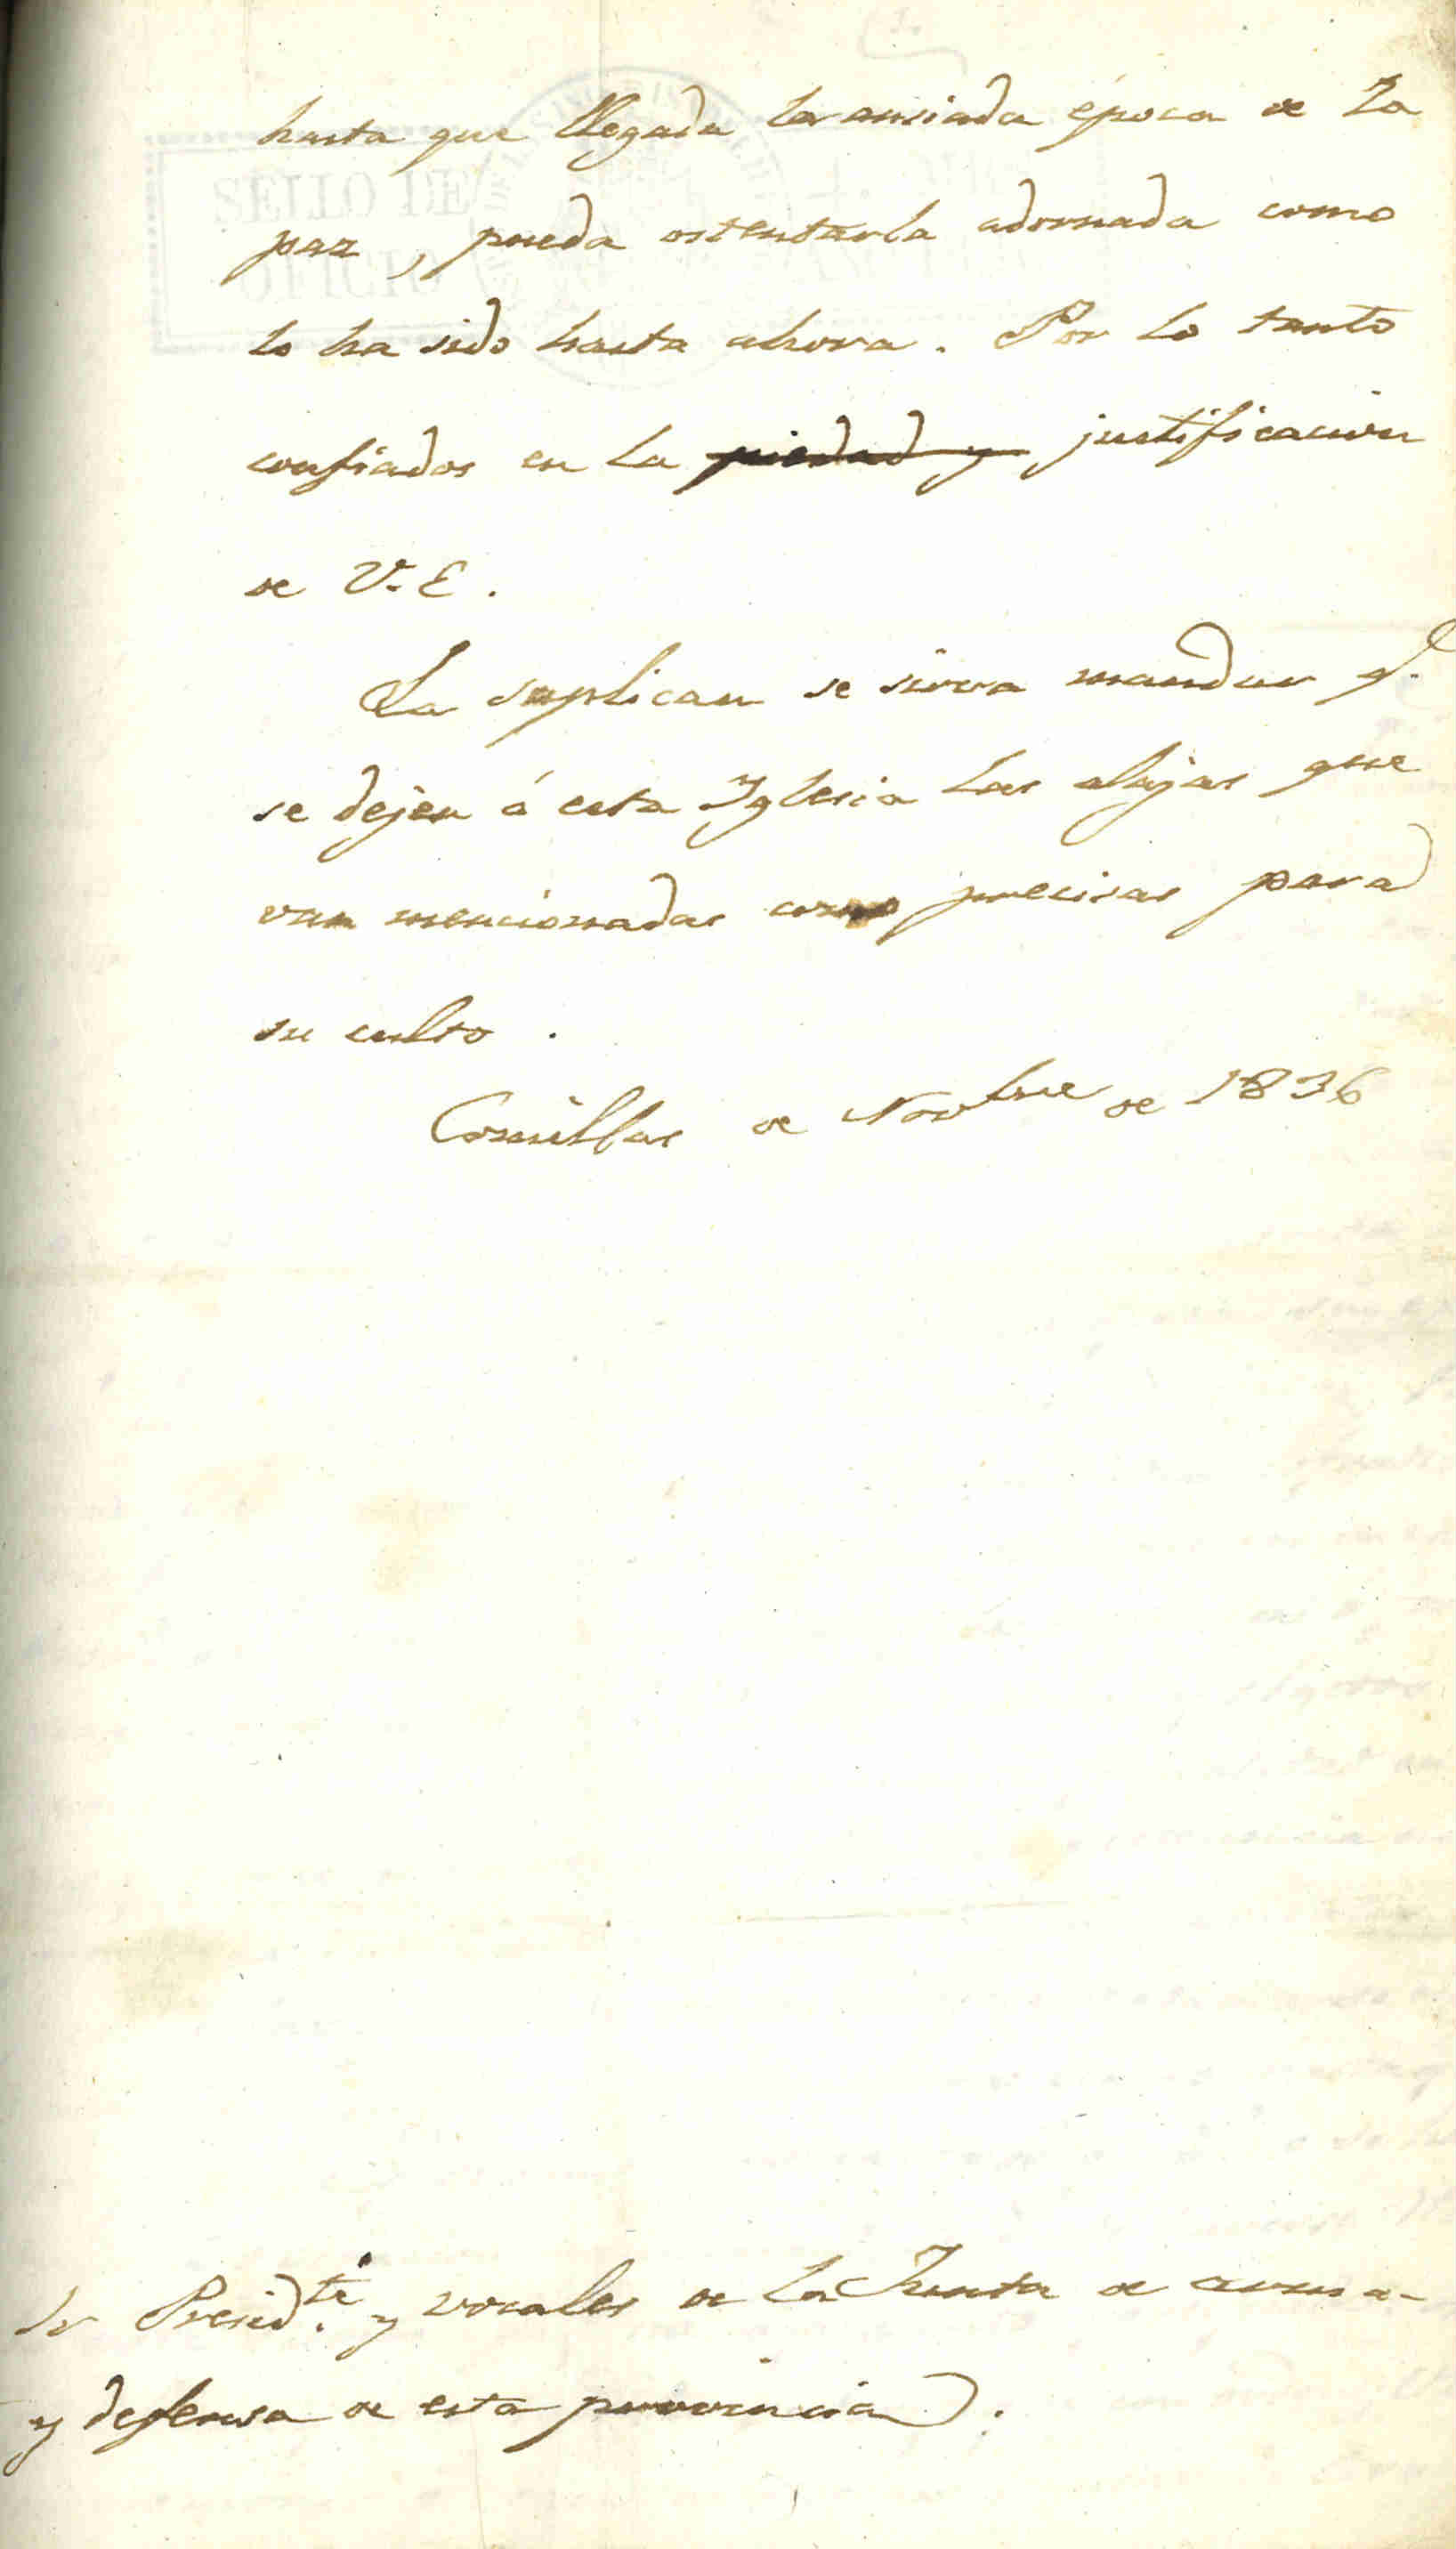 hasta que llegada la ansiada época de la
paz, pueda ostentarla adornada como
lo ha sido hasta ahora. Por lo tanto
confiados en la piedad y justificacion
de V. E.
La suplican se sirva mandar q.
se dejen á esta Iglesia las alajas que
van mencionadas como precisas para
su culto.
Comillas de Novbre de 1836
Sr Presidte. y vocales de la Junta de arma-
y defensa de esta provincia.
SELLO DE
OFICIO